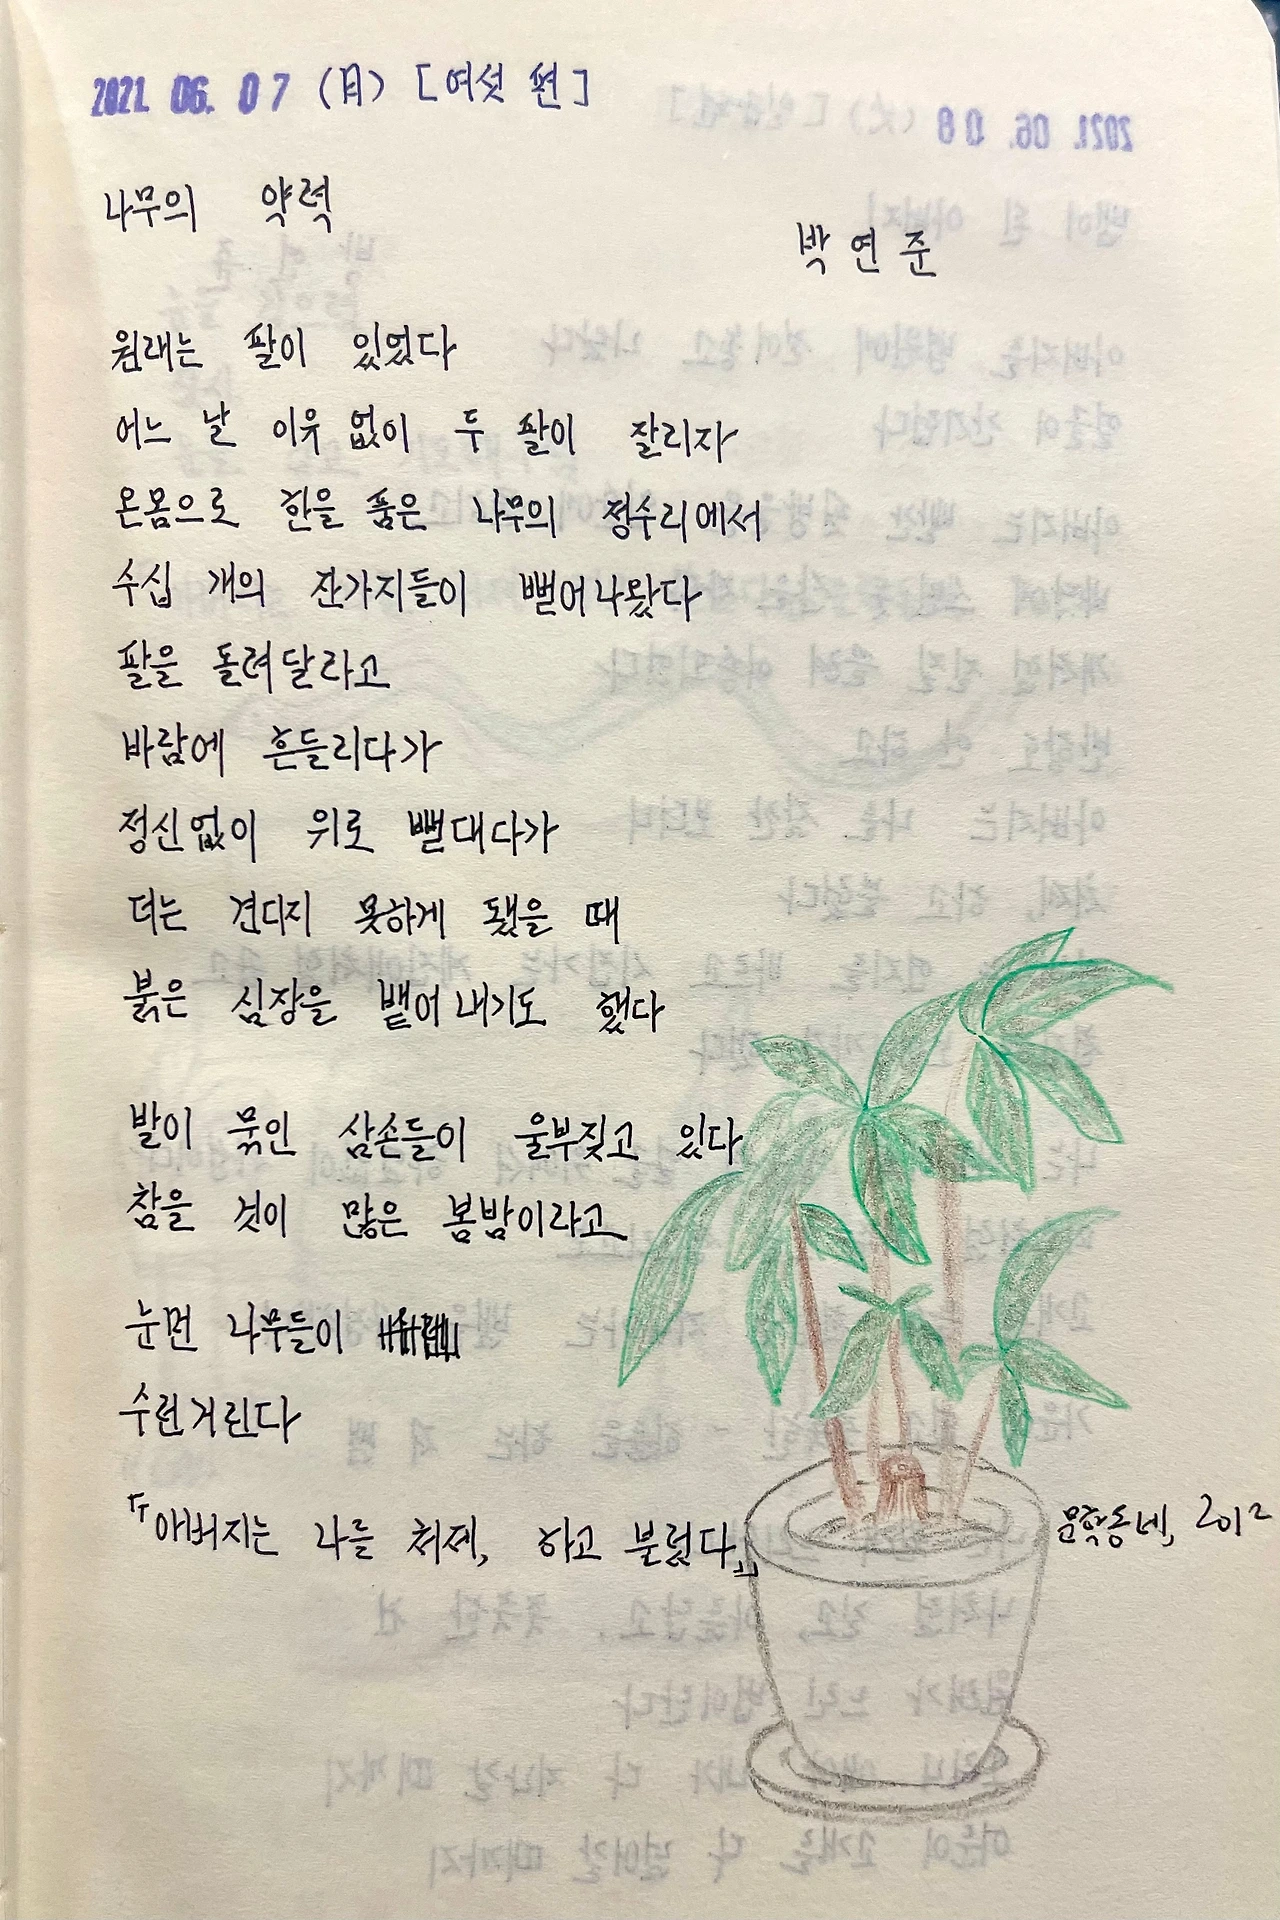 2021. 06. 07 (月) [여섯 편]
나무의 약력
박연준
원래는 팔이 있었다
어느 날 이유 없이 두 팔이 잘리자
온몸으로 한을 품은 나무의 정수리에서
수십 개의 잔가지들이 뻗어나왔다
팔을 돌려달라고
바람에 흔들리다가
정신없이 위로 뻗대다가
더는 견디지 못하게 됐을 때
붉은 심장을 뱉어내기도 했다
발이 묶인 삼손들이 울부짖고 있다
참을 것이 많은 봄밤이라고
눈먼 나무들이
수런거린다
『아버지는 나를 처제, 하고 불렀다』 문학동네, 2012